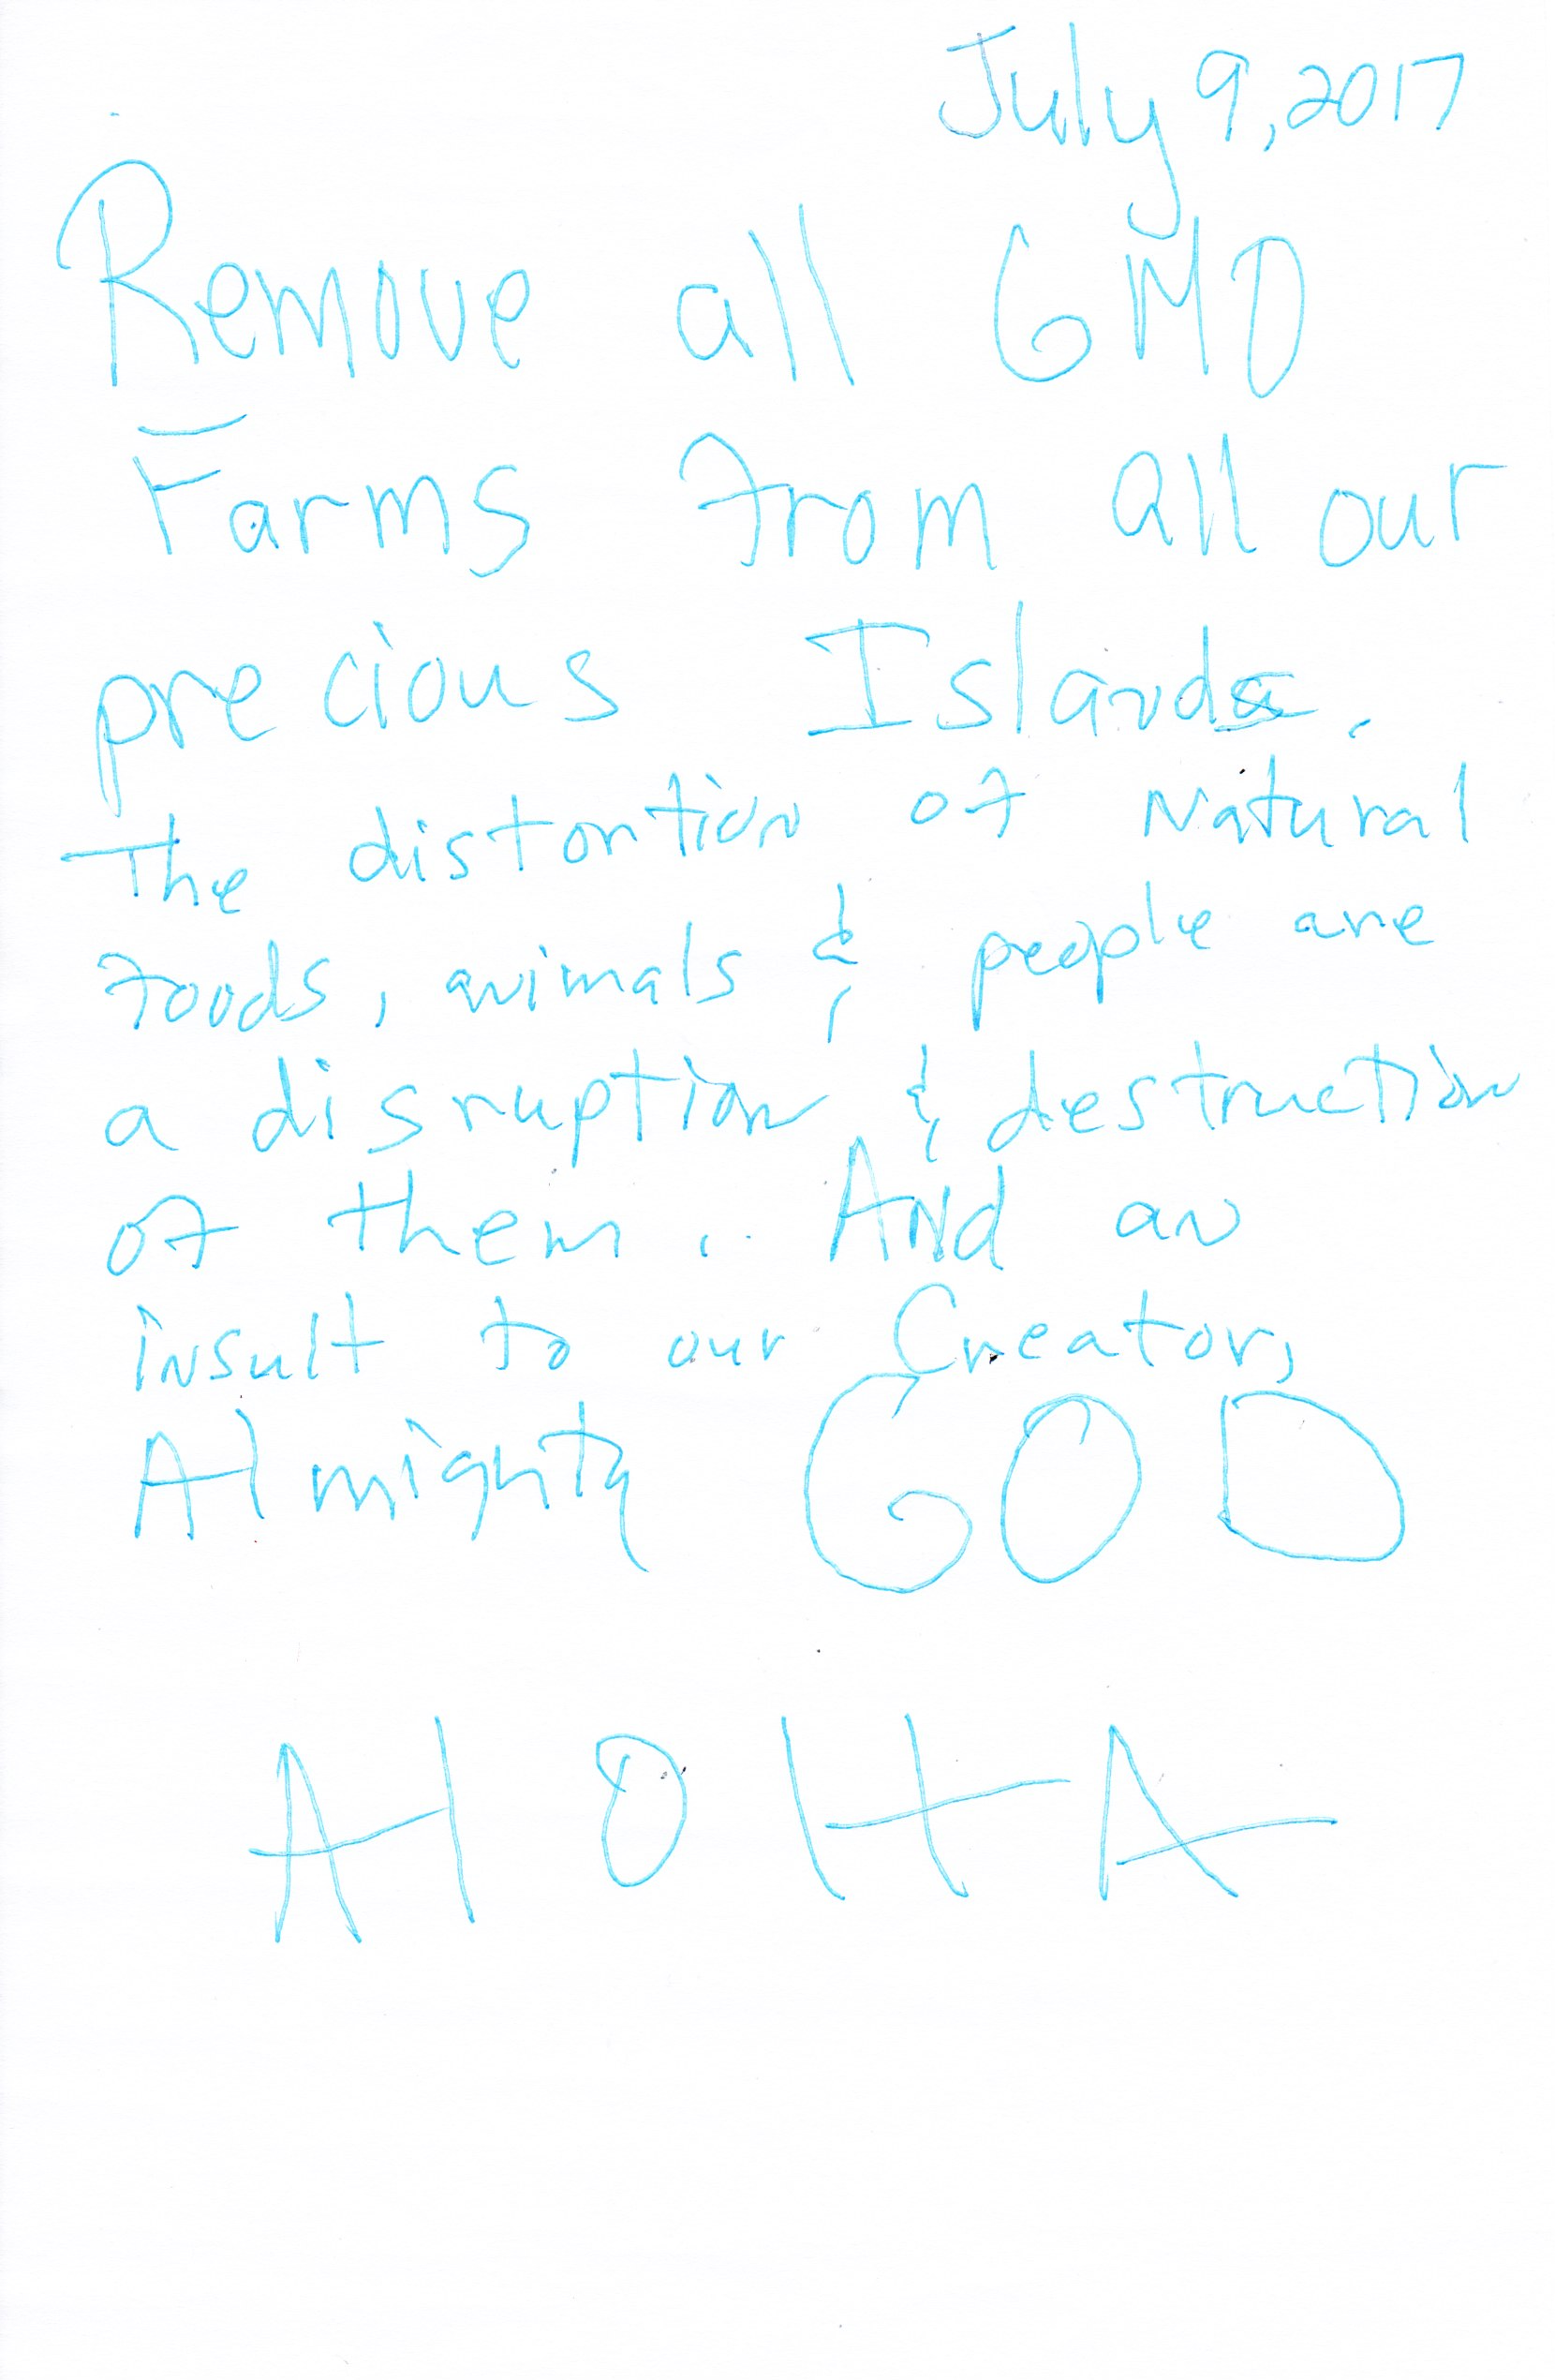 July 9, 2017
Remove all GMO
Farms from all our
precious Islands.
The distortion of Natural
foods, animals & people are
a disruption & destruction
of them... And an
insult to our Creator,
Almighty GOD
AlOHA